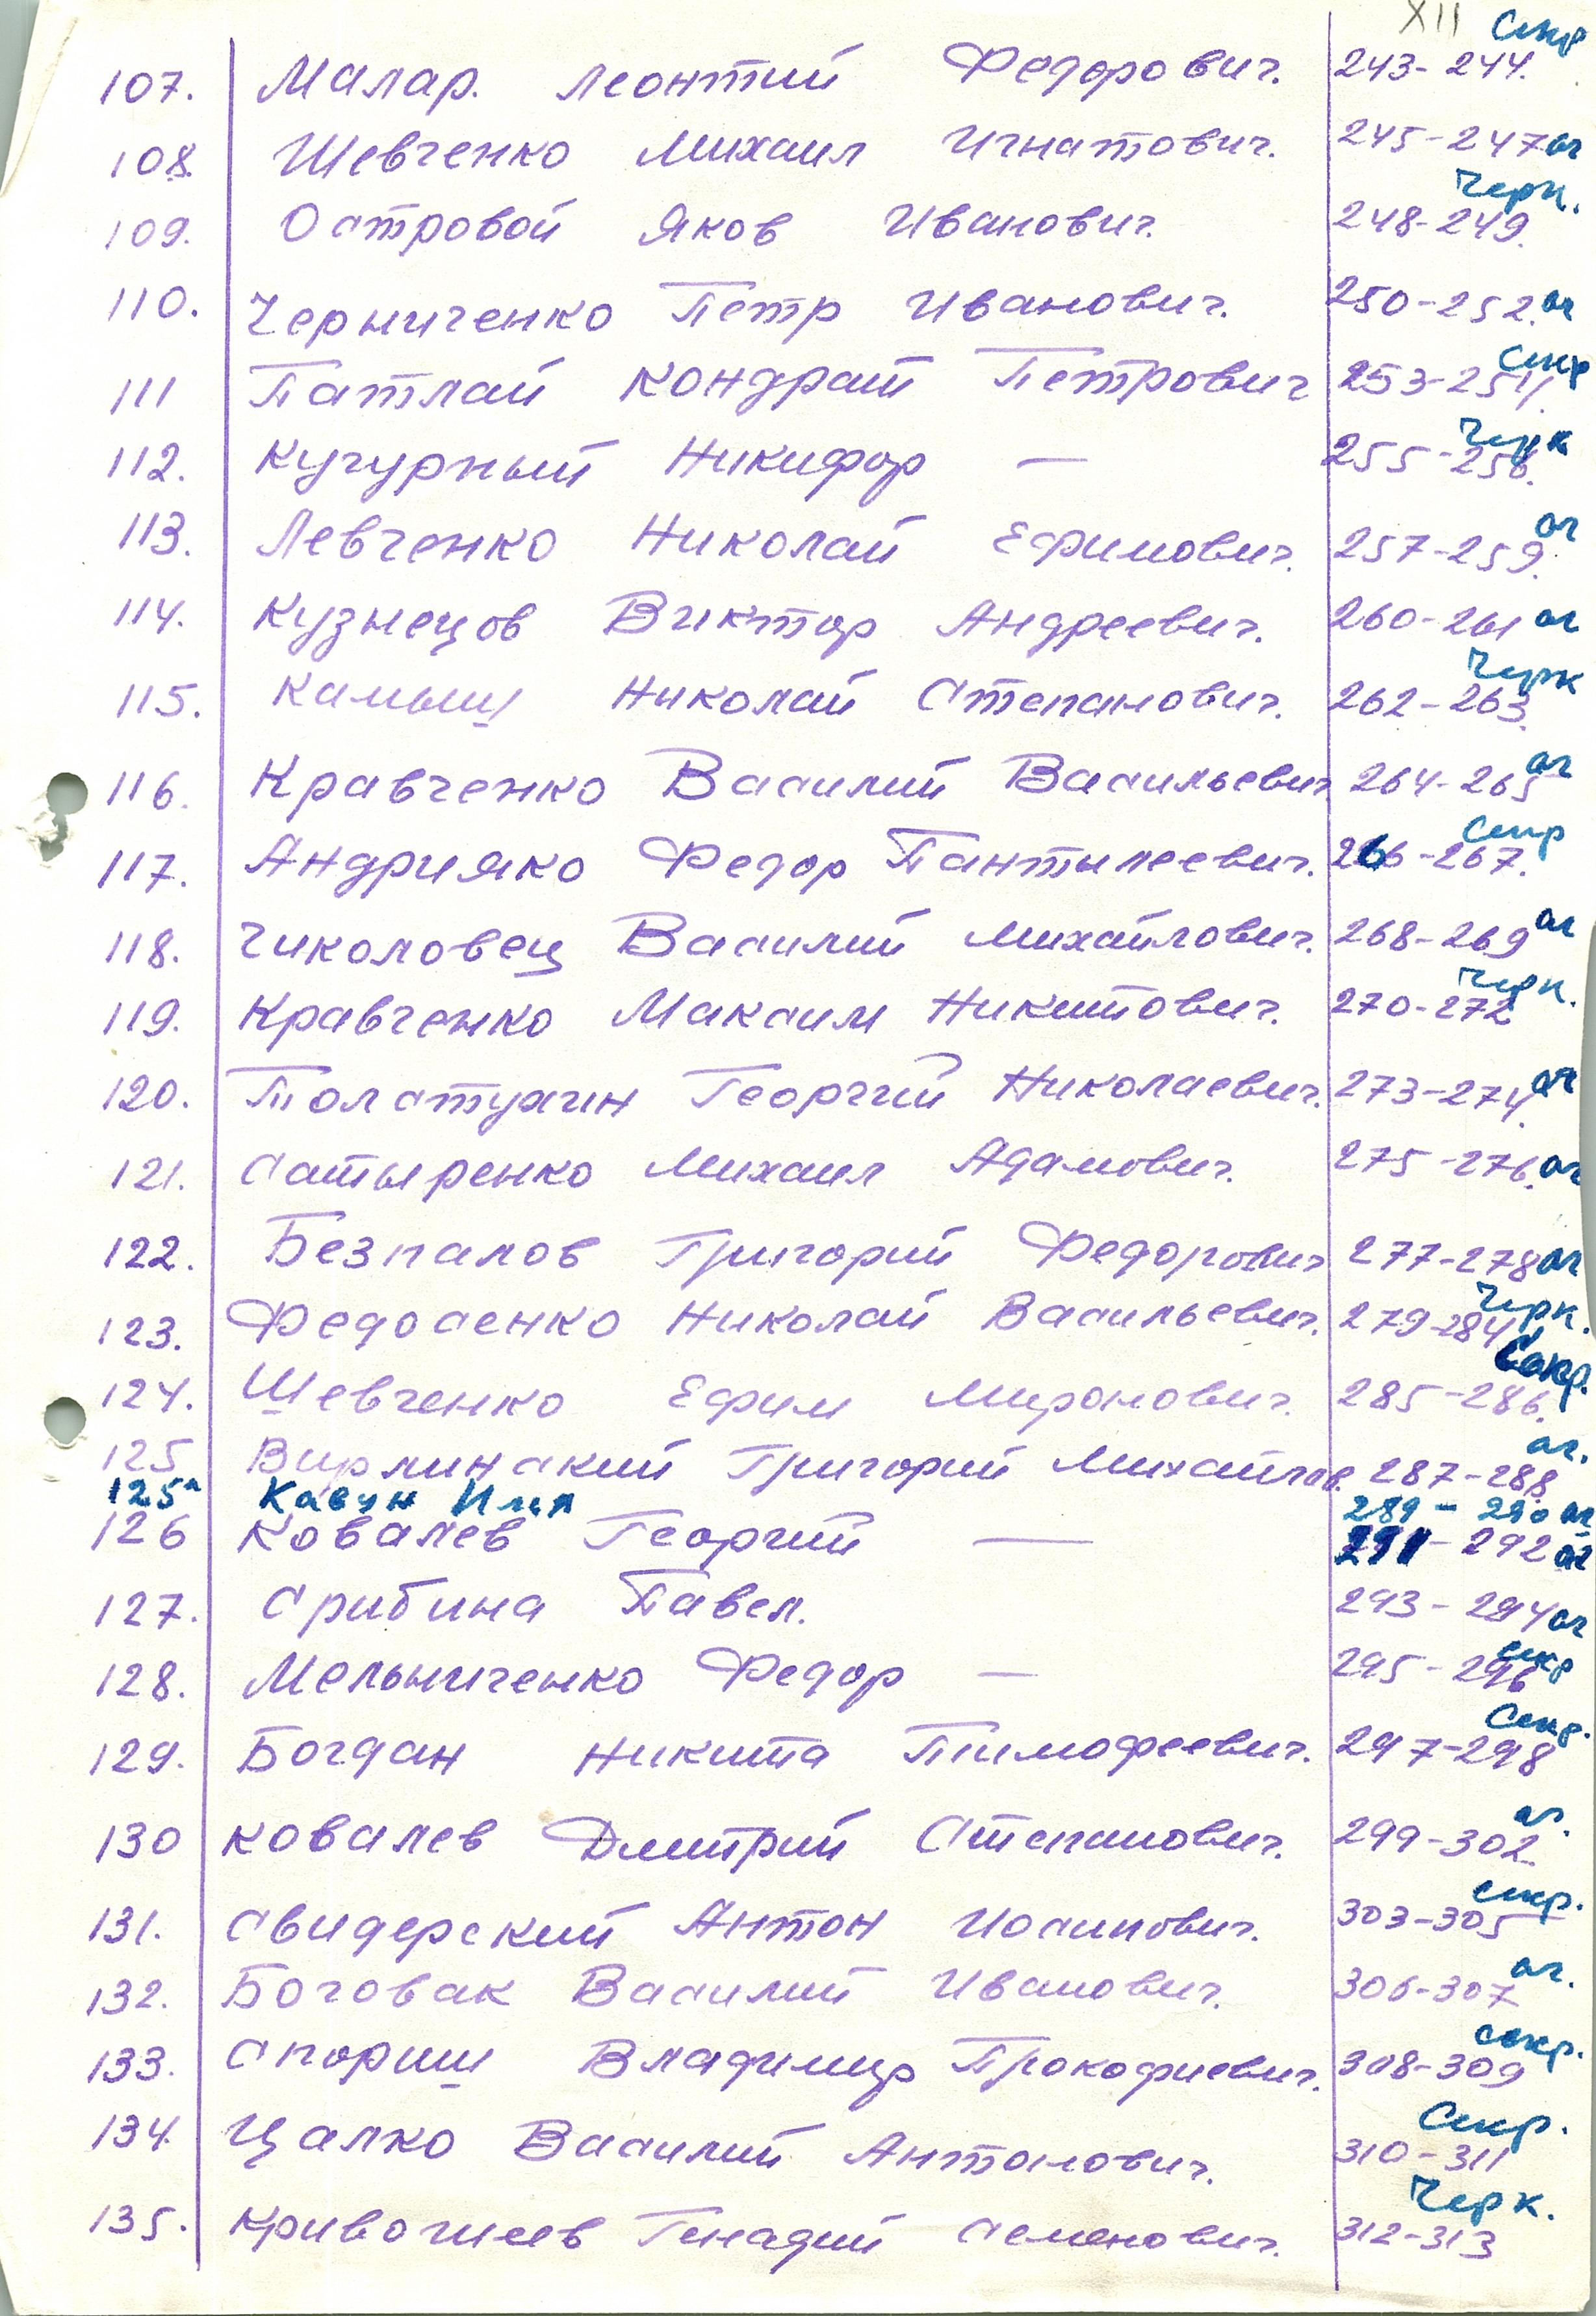 XII
107. Малар. Леонтий Федорович. 243-244.
108. Шевченко Михаил Игнатович. 245-247 ог
109. Островой Яков Иванович. 248-249. Черк.
110. Черниченко Петр Иванович. 250-252. ог
111 Патлай Кондрат Петрович 253-254.
112. Кучурный Никифор — 255-256. Черк
113. Левченко Николай Ефимович. 257-259. ог
114. Кузнецов Виктор Андреевич. 260-261 ог
115. Камыш Николай Степанович. 262-263. Черк
116. Кравченко Василий Васильевич 264-265 ог
117. Андрияко Федор Пантилеевич. 266-267.
118. Чиколовец Василий Михайлович. 268-269 ог
119. Кравченко Максим Никитович. 270-272 Черк.
120. Толстухин Георгий Николаевич. 273-274. ог
121. Сатыренко Михаил Адамович. 275-276. ог
122. Безпалов Григорий Федорович 277-278 ог
123. Федосенко Николай Васильевич. 279-284 Черк.
124. Шевченко Ефим Миронович. 285-286.
125 Вирлинский Григорий Михайлов. 287-288. ог.
125а Кавун Илья 289-290 ог
126 Ковалев Георгий — 291-292 ог
127. Срибина Павел. 293-294 ог
128. Мельниченко Федор — 295-296
129. Богдан Никита Тимофеевич. 297-298
130 Ковалев Дмитрий Степанович. 299-302 ог.
131. Свидерский Антон Иосипович. 303-305
132. Боговак Василий Иванович. 306-307 ог.
133. Спориш Владимир Прокофиевич. 308-309
134. Цалко Василий Антонович. 310-311
135. Кривошеев Генадий Семенович. 312-313 Черк.